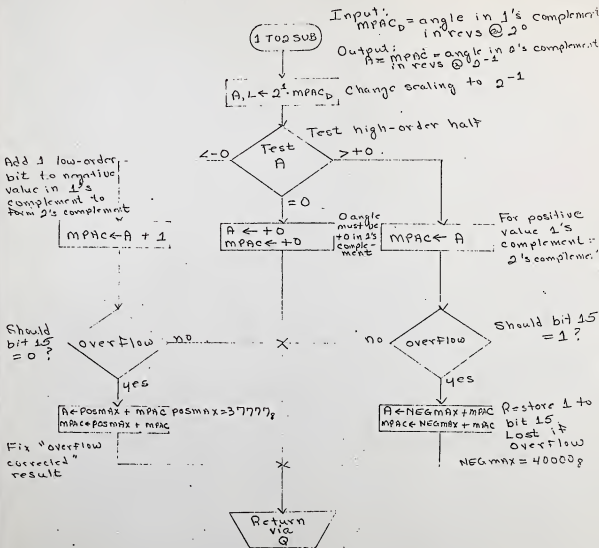 1 TO2 SUB
Input:
MPAC_D = angle in 1's complement
in revs @ 2⁰
Output:
A = MPAC = angle in 2's complement
in revs @ 2⁻¹
A, L ← 2¹·MPAC_D
Change scaling to 2⁻¹
Test high-order half
Test
A
<-0
>+0
=0
Add 1 low-order
bit to negative
value in 1's
complement to
form 2's complement
MPAC ← A + 1
A ← +0
MPAC ← +0
0 angle
must be
+0 in 2's
comple-
ment
MPAC ← A
For positive
value 1's
complement =
2's
Should
bit 15
= 0?
overflow
no
yes
no
overflow
yes
Should bit 15
= 1?
A ← POSMAX + MPAC
MPAC ← POSMAX + MPAC
POSMAX = 37777₈
Fix "overflow
corrected"
result
A ← NEGMAX + MPAC
MPAC ← NEGMAX + MPAC
Restore 1 to
bit 15
Lost if
overflow
NEGMAX = 40000₈
Return
via
Q